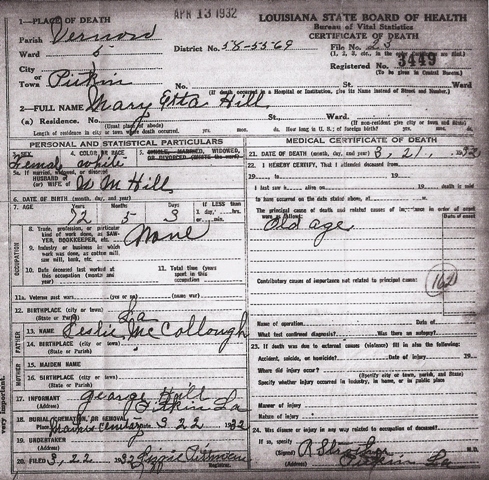 APR 13 1932
LOUISIANA STATE BOARD OF HEALTH
Bureau of Vital Statistics
CERTIFICATE OF DEATH
1—PLACE OF DEATH
Parish Vernon
Ward 5
District No. 58-5569
File No. 23
Registered No. 3449
(To be given in Central Bureau)
City or Town Pitkin No. St. Ward
(If death occurred in a Hospital or Institution, give its Name instead of Street and Number.)
2—FULL NAME Mary Etta Hill
(a) Residence. No. St. Ward
(Usual place of abode)
(If non-resident give city or town and state)
Length of residence in city or town where death occurred, yrs. mos. ds. How long in U. S., if of foreign birth? yrs. mos. ds.
PERSONAL AND STATISTICAL PARTICULARS
3. SEX
Female
4. COLOR OR RACE
white
5. SINGLE, MARRIED, WIDOWED, OR DIVORCED (Write the word)
5a. If married, widowed, or divorced
HUSBAND of
(or) WIFE of W M Hill
6. DATE OF BIRTH (month, day, and year)
7. AGE
5 3
If LESS than 1 day, hrs. or min.
OCCUPATION
8. Trade, profession, or particular kind of work done, as SAWYER, BOOKKEEPER, etc. None
9. Industry or business in which work was done, as cotton mill, saw mill, bank, etc.
10. Date deceased last worked at this occupation (month and year)
11. Total time (years) spent in this occupation
11a. Veteran past wars (yes or no) (name war)
12. BIRTHPLACE (city or town) La
(State or Parish)
FATHER
13. NAME Leslie McCollough
14. BIRTHPLACE (city or town)
(State or Parish)
MOTHER
15. MAIDEN NAME
16. BIRTHPLACE (city or town)
(State or Parish)
17. INFORMANT George Hill
(Address) Pitkin La
18. BURIAL, CREMATION, OR REMOVAL
Place cemetery 3 22 1932
19. UNDERTAKER
(Address)
20. FILED 3, 22 1932 Lizzie
Registrar.
MEDICAL CERTIFICATE OF DEATH
21. DATE OF DEATH (month, day, and year) 3, 21, 1932
22. I HEREBY CERTIFY, That I attended deceased from
19 to 19
I last saw h alive on 19 death is said
to have occurred on the date stated above, at m.
The principal cause of death and related causes of importance in order of onset were as follows:
Date of onset
Old age
162
Contributory causes of importance not related to principal cause:
Name of operation Date of
What test confirmed diagnosis? Was there an autopsy?
23. If death was due to external causes (violence) fill in also the following:
Accident, suicide, or homicide? Date of injury 19
Where did injury occur?
(Specify city or town, parish, and State)
Specify whether injury occurred in industry, in home, or in public place
Manner of injury
Nature of injury
24. Was disease or injury in any way related to occupation of deceased?
If so, specify
(Signed) M.D.
(Address) Pitkin La
very important.